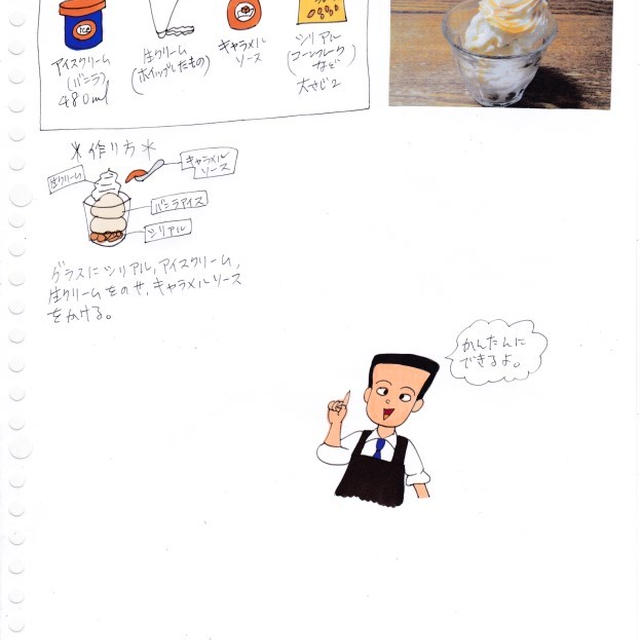 アイスクリーム
(バニラ)
480ml
生クリーム
(ホイップしたもの)
キャラメル
ソース
シリアル
(コーンフレーク
など)
大さじ2
*作り方*
生クリーム
キャラメル
ソース
バニラアイス
シリアル
グラスにシリアル,アイスクリーム,
生クリームをのせ,キャラメルソース
をかける。
かんたんに
できるよ。